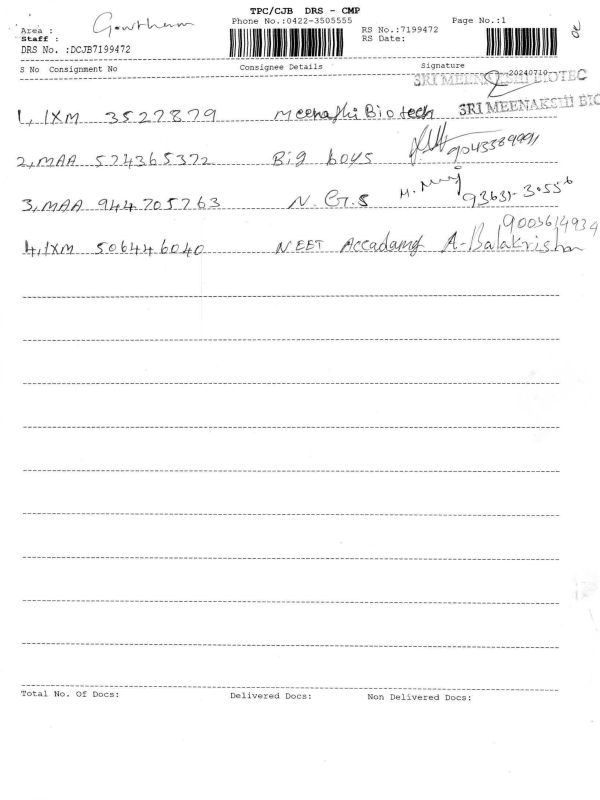 TPC/CJB DRS - CMP
Area : Gowtham Phone No.:0422-3505555 Page No.:1
Staff : RS No.:7199472
DRS No. :DCJB7199472 RS Date:
S No Consignment No Consignee Details Signature
20240710
SRI MEENAKSHI BIOTEC
1, IXM 3527879 Meenakshi Biotech SRI MEENAKSHI BIO
2, MAA 574365372 Big boys 9043389991
3, MAA 944705763 N. G. S 93631-30556
9003614934
4, IXM 506446040 NEET Accadamy A-Balakrishnan
Total No. Of Docs: Delivered Docs: Non Delivered Docs: